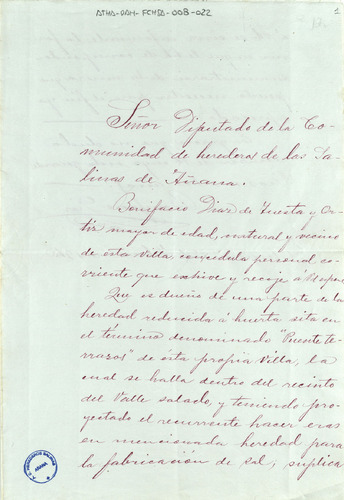 ATHA-DAH-FCHSA-008-022
1
Señor Diputado de la Co-
munidad de herederos de las Sa-
linas de Añana.
Bonifacio Diaz de Tuesta y Or-
tiz mayor de edad, natural y vecino
de esta Villa, con cédula personal co-
rriente que exhive y recoje á V. espone
Que es dueño de una parte de la
heredad reducida á huerta sita en
el término denominado "Puente te-
rrazos" de esta propia Villa, la
cual se halla dentro del recinto
del Valle salado, y teniendo pro-
yectado el recurrente hacer eras
en mencionada heredad para
la fabricación de sal, suplica
AÑANA